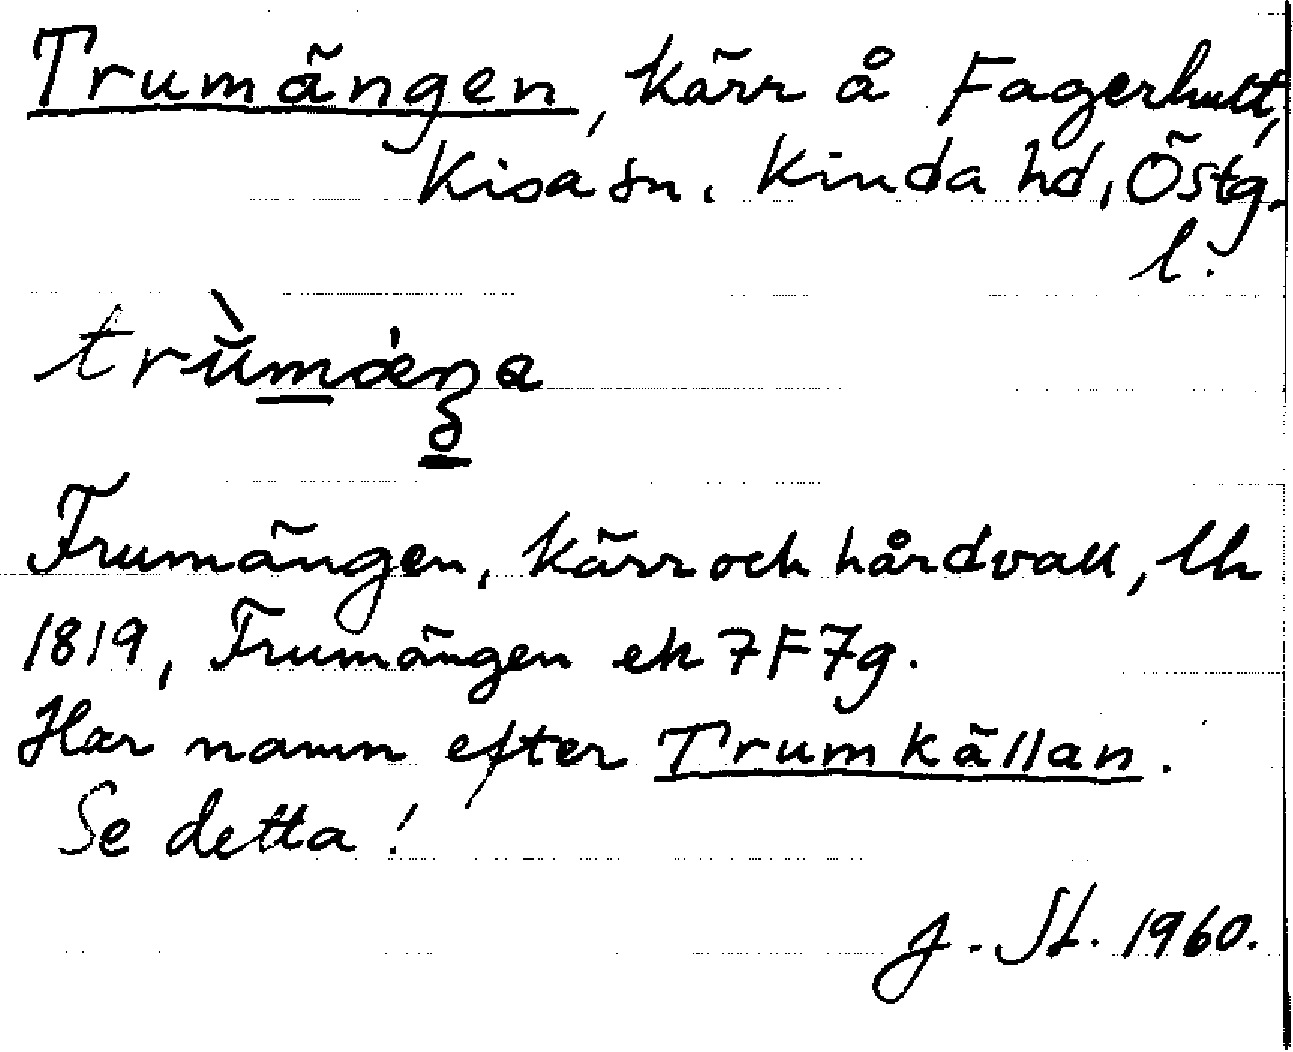 Trumängen, kärr å Fagerhult,
Kisa sn, Kinda hd, Östg.
l.
trùmǽŋa
Trumängen, kärr och hårdvall, lh
1819, Trumängen ek 7F7g.
Har namn efter Trumkällan.
Se detta!
J. St. 1960.